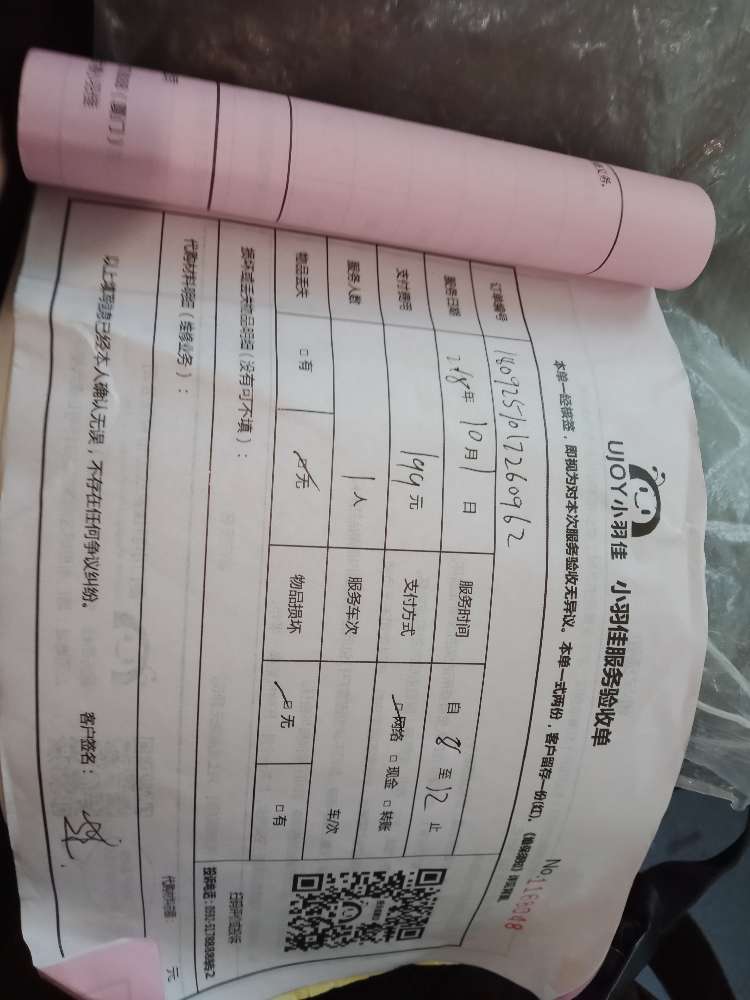 UJOY小羽佳 小羽佳服务验收单
No:1168048
本单一经接签，即视为对本次服务验收无异议。本单一式两份，客户留存一份(红)。
订单编号 180925101726096 2
服务日期 2018年 10月1日 服务时间 自 8 至 12 止
支付费用 199元 支付方式 ☑网络 □现金 □转账
服务人数 1人 服务车次 车次
物品丢失 □有 ☑无 物品损坏 ☑无 □有
损坏或丢失物品明细(没有可不填)：
代购材料明细(维修业务)：
元
以上填写信息已经本人确认无误，不存在任何争议纠纷。
客户签名：